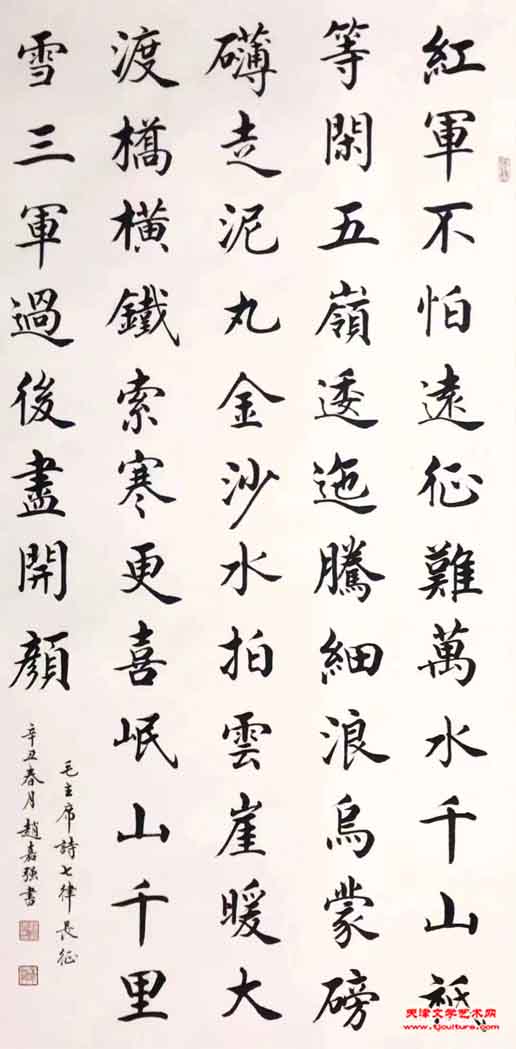 紅軍不怕遠征難萬水千山祇
等閑五嶺逶迤騰細浪烏蒙磅
礴走泥丸金沙水拍雲崖暖大
渡橋橫鐵索寒更喜岷山千里
雪三軍過後盡開顏
毛主席詩七律長征
辛丑春月趙嘉强書
天津文学艺术网
www.tjculture.com